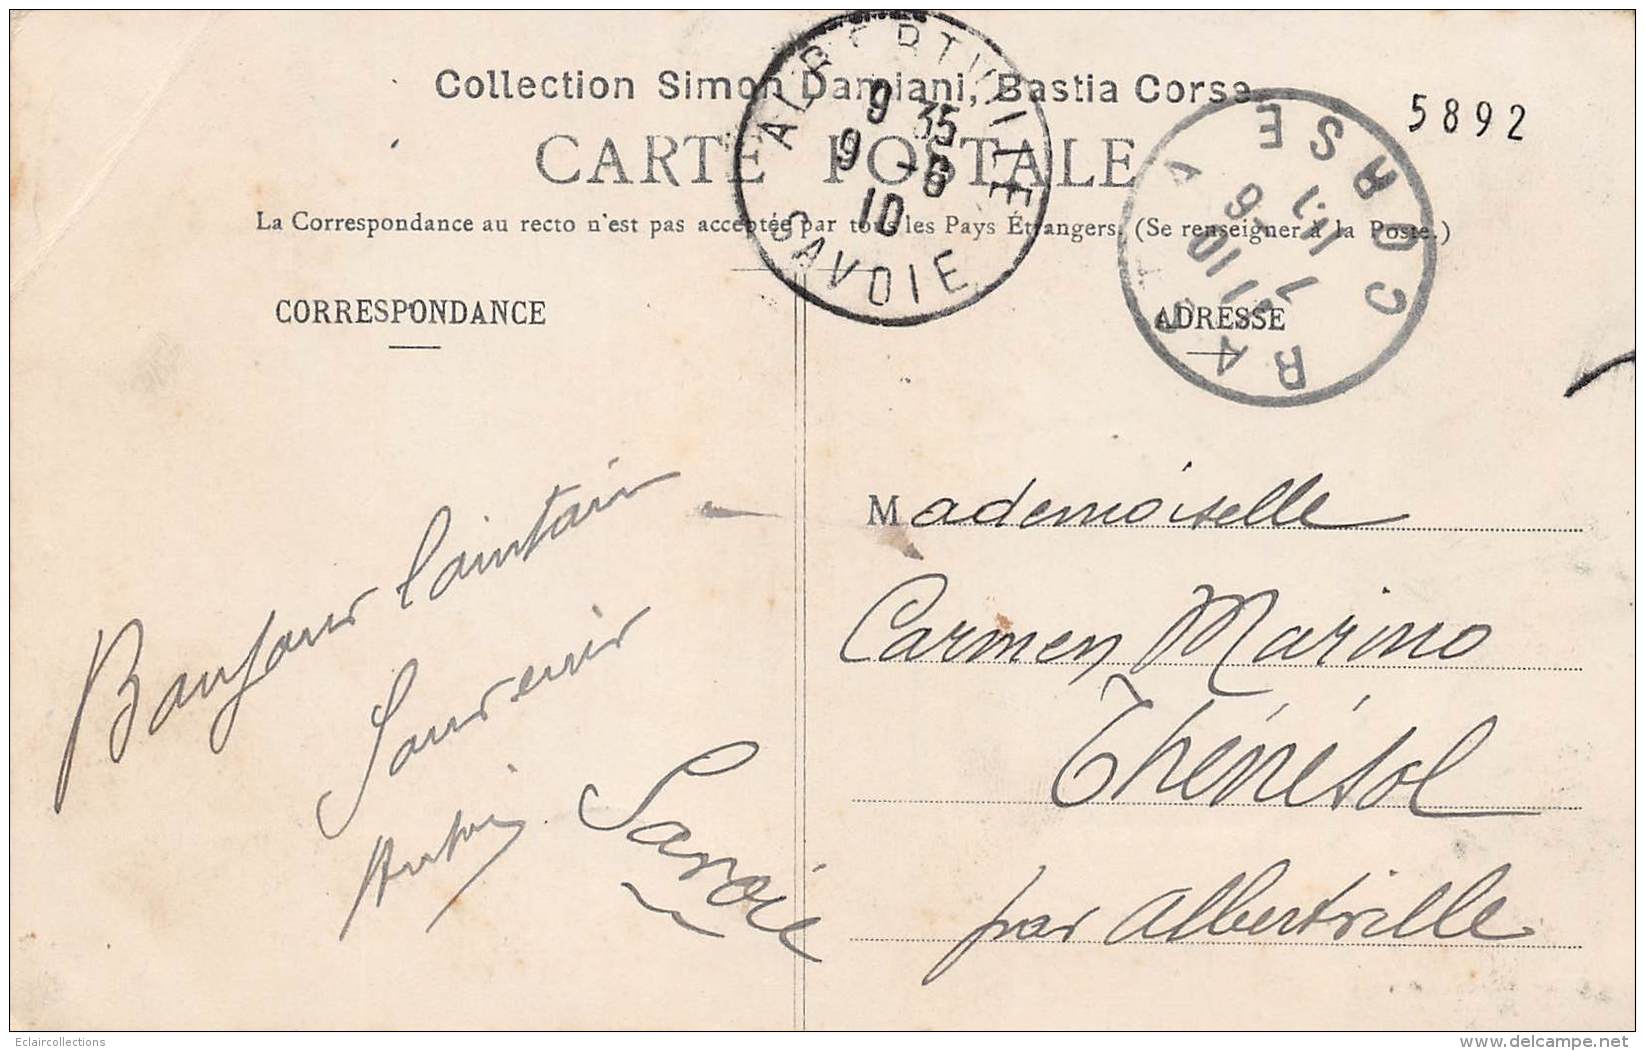 Collection Simon Damiani, Bastia Corse
5892
CARTE POSTALE
La Correspondance au recto n'est pas acceptée par tous les Pays Étrangers. (Se renseigner à la Poste.)
ALBERTVILLE
9 35
9 -6
10
SAVOIE
BASTIA
CORSE
7 -6
10
CORRESPONDANCE
ADRESSE
Bonjour lointain
Souvenir
Antoine
Mademoiselle
Carmen Marino
Thénésol
par Albertville
Savoie
Eclaircollections
delcampe.net